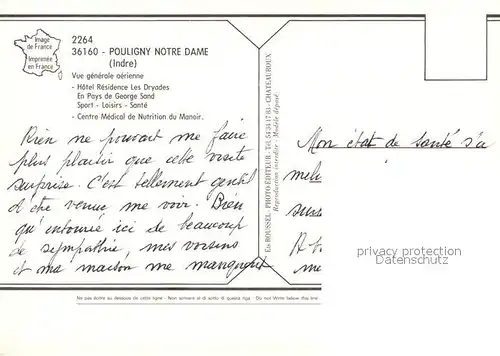 Image
de France
Imprimée
en France
2264
36160 - POULIGNY NOTRE DAME
(Indre)
Vue générale aérienne
- Hôtel Résidence Les Dryades
En Pays de George Sand
Sport - Loisirs - Santé
- Centre Médical de Nutrition du Manoir.
Rien ne pouvait me faire
plus plaisir que cette visite
surprise. C'est tellement gentil
d'être venue me voir. Bien
qu'entourée ici de beaucoup
de sympathie, mes voisins
et ma maison me manquent
PHOTO-ÉDITEUR
CHATEAUROUX
Reproduction interdite - Modèle déposé
Mon état de santé s'a
privacy protection
Ne pas écrire au dessous de cette ligne - Non scrivere al di sotto di questa riga - Do not Write below this line